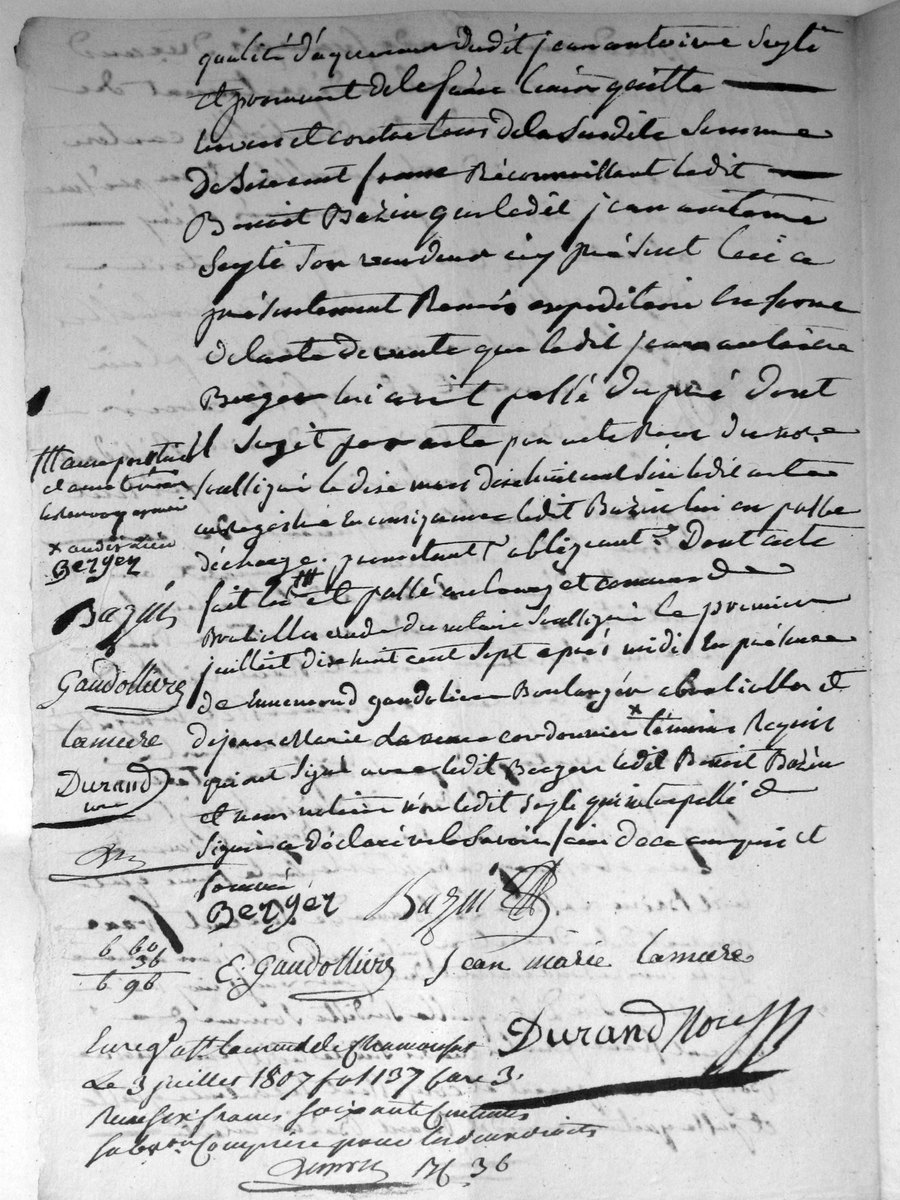 qualité d'aquereur dudit jean antoine Seyti
et provenant de la
envers et contre tous de la Susditte Somme
De Six cent franc Reconnoissant ledit
Benoit Bazin que ledit jean antoine
Seyti Son vendeur icy présent lui a
présentement Remis expedition en forme
de lacte de vente que ledit jean antoine
Berger lui avoit passé du pré dont
Il Sagit par acte par acte Recu du no.re
Soussigné le dix mars dix huit cent Six ledit acte
enregistré en consequence ledit Bazin lui en passe
décharge. promettant obligeant Dont acte
fait lu et passé au bourg et commune de
etude du notaire Soussigné le premier
juillet dix huit cent Sept après midi En présence
de Ennemond gaudoliere Boulanger et
de jean Marie Lamure cordonnier x témoins Requis
qui ont Signé avec ledit Berger ledit Benoit Bazin
et nous notaire non ledit Seyti qui interpellé de
Signer a déclaré ne le Savoir faire de ce enquis et
Sommé
x audit lieu
Berger
Bazin
Gaudolliere
Lamure
Durand
nre
Berger Bazin
E. Gaudolliere Jean marie Lamure
6 60
36
6 96
Durand Nore
Enreg. a St Laurent de Chamousset
Le 3 juillet 1807 fol 137 Case 3.
Recu six francs soixante Centimes
Subvon Comprise pour les deux droits
36